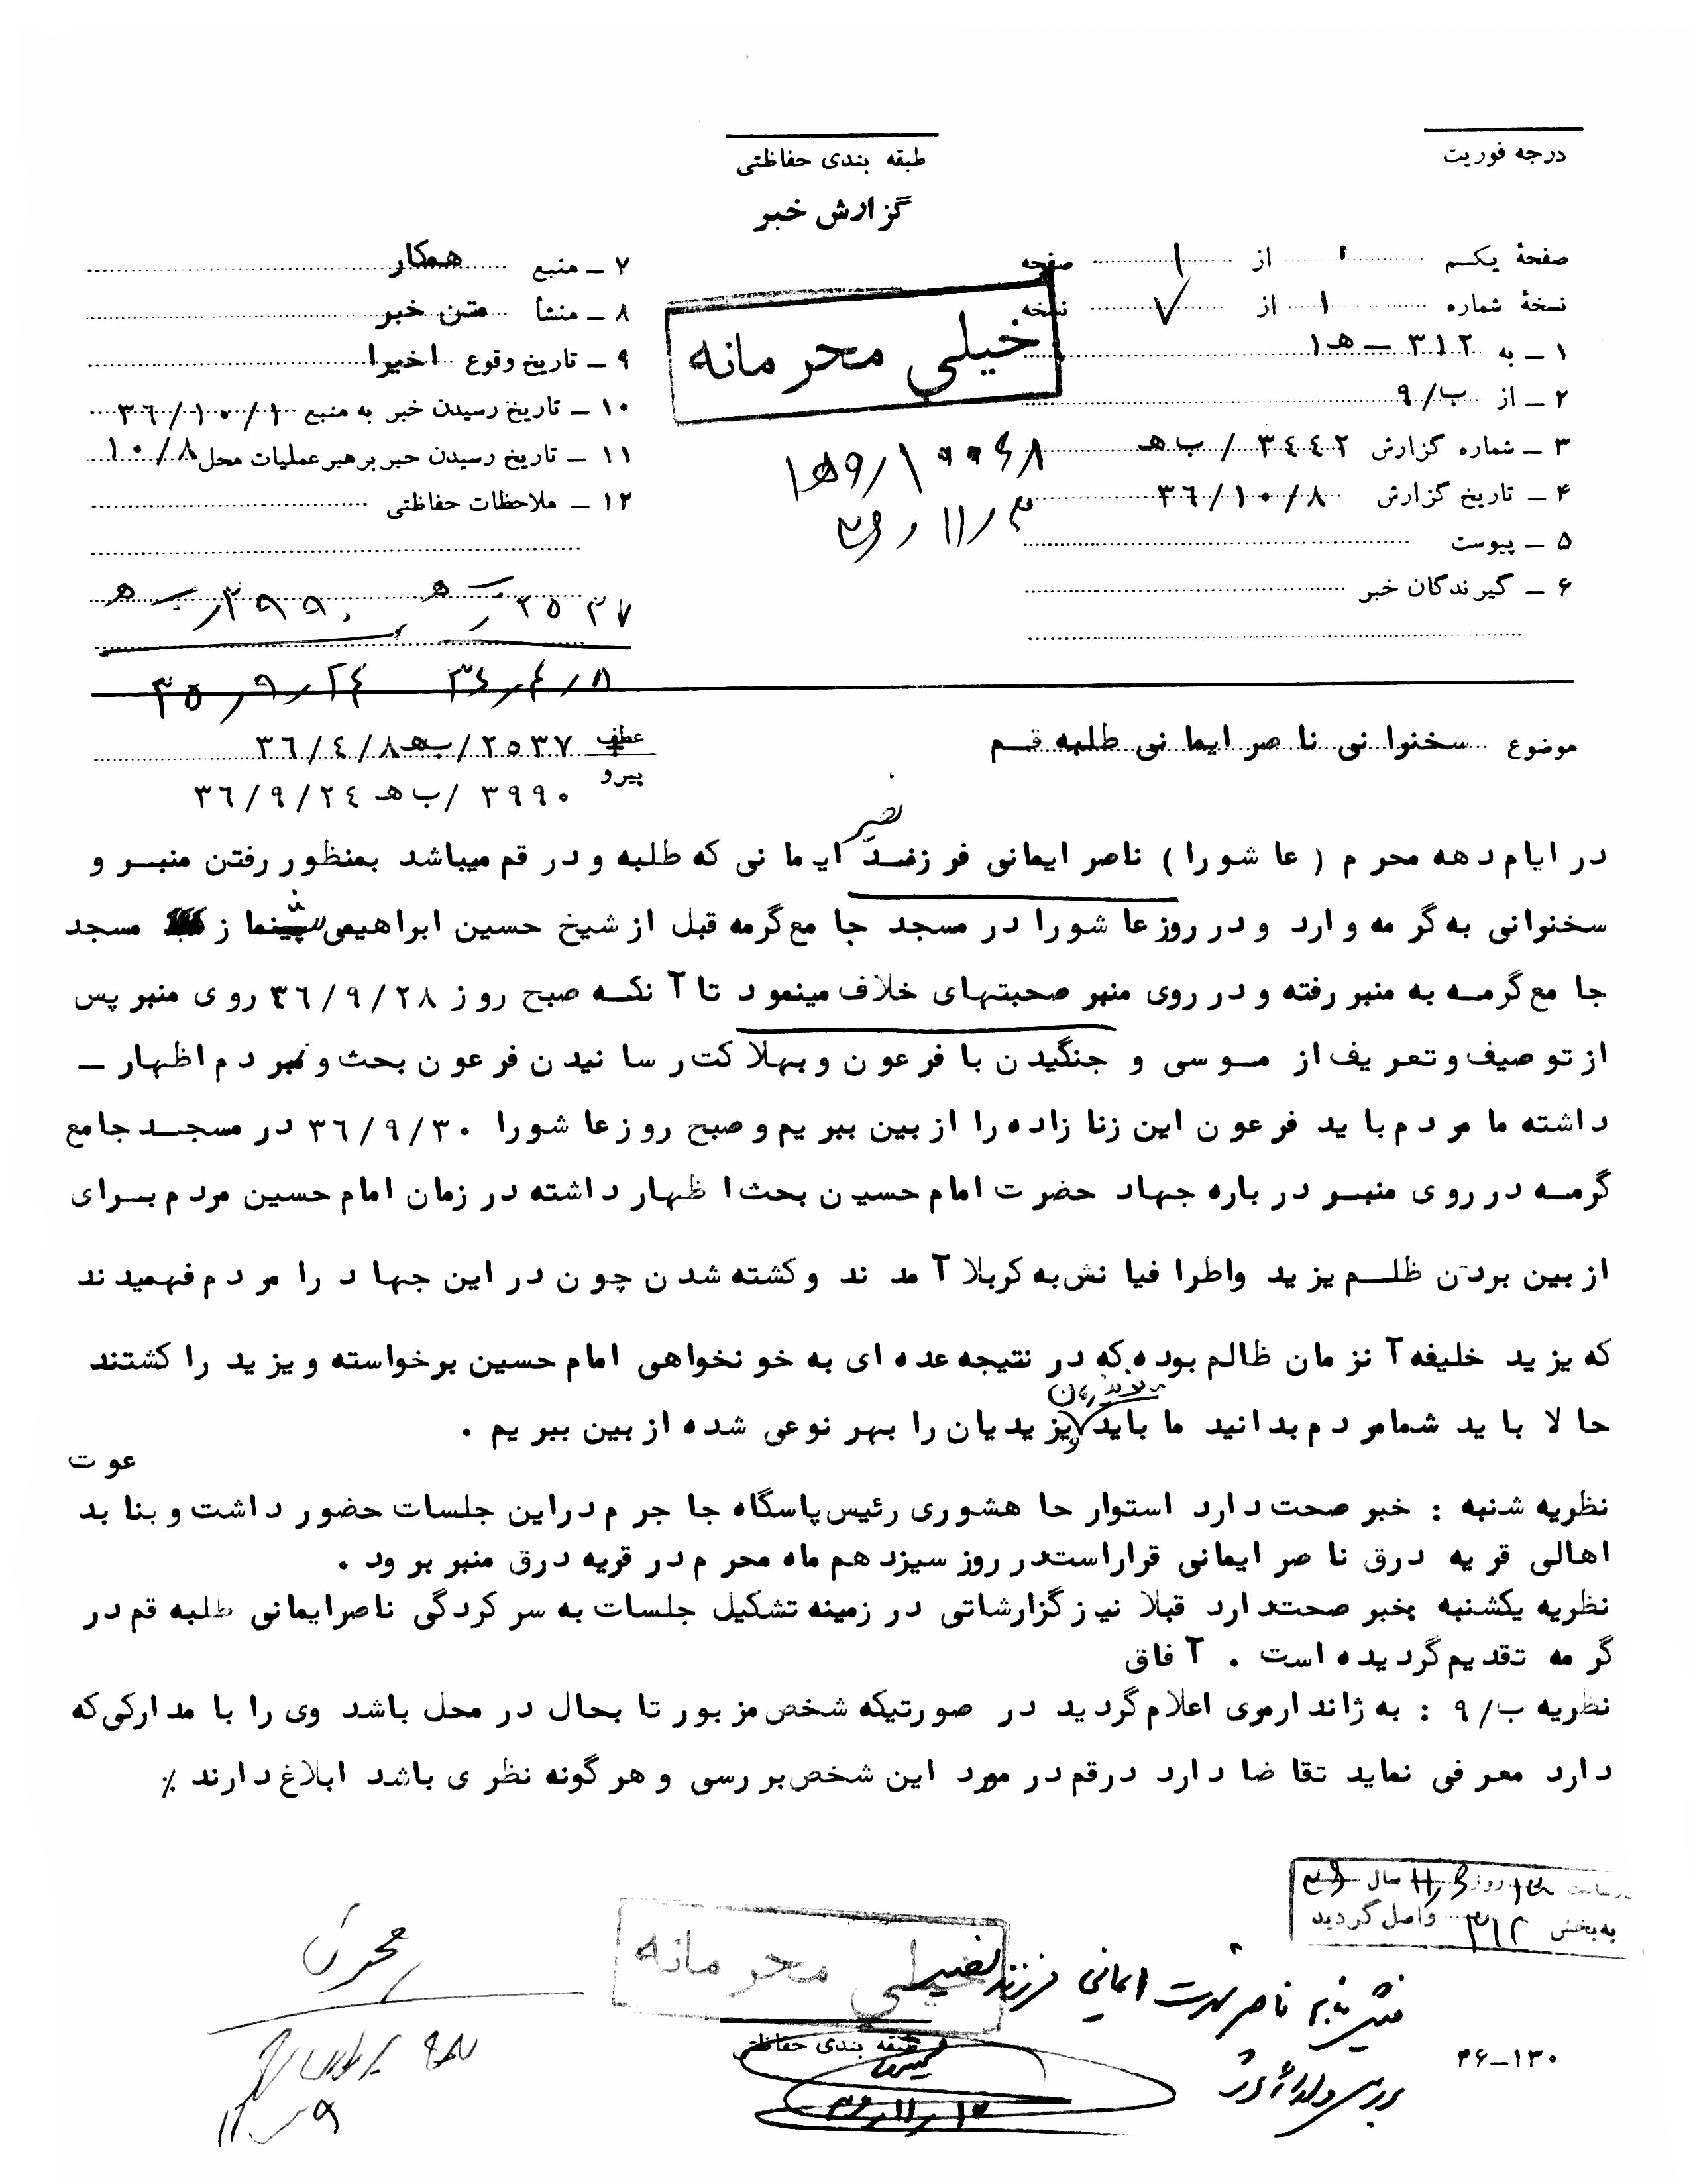 درجه فوریت
طبقه بندی حفاظتی
گزارش خبر
صفحهٔ یکم ۱ از ۱ صفحه
نسخهٔ شماره ۱ از ۷ نسخه
۱ ـ به ۳۱۲ ـ ه‍ ۱
۲ ـ از ۹/ب
۳ ـ شماره گزارش ۳٤٤۲ / ب ه‍
۴ ـ تاریخ گزارش ۳٦/۱۰/۸
۵ ـ پیوست
۶ ـ گیرندگان خبر
خیلی محرمانه
۷ ـ منبع همکار
۸ ـ منشأ متن خبر
۹ ـ تاریخ وقوع اخیرا
۱۰ ـ تاریخ رسیدن خبر به منبع ۳٦/۱۰/۱
۱۱ ـ تاریخ رسیدن خبر برهبر عملیات محل ۱۰/۸
۱۲ ـ ملاحظات حفاظتی
۳۶/۱۱/۳
۳۵/۹/۲۴ ۳۶/۴/۸
موضوع سخنرانی ناصر ایمانی طلبه قم
عطف ۲۵۳۷/ب ه‍ ۳٦/٤/۸
پیرو ۳۹۹۰ /ب ه‍ ۳٦/۹/۲٤
نصیر
در ایام دهه محرم ( عاشورا ) ناصر ایمانی فرزند ایمانی که طلبه و در قم میباشد بمنظور رفتن منبر و
سخنرانی به گرمه وارد و در روز عاشورا در مسجد جامع گرمه قبل از شیخ حسین ابراهیمی پیشنماز مسجد
جامع گرمه به منبر رفته و در روی منبر صحبتهای خلاف مینمود تا آنکه صبح روز ۳٦/۹/۲۸ روی منبر پس
از توصیف و تعریف از موسی و جنگیدن با فرعون و بهلاکت رسانیدن فرعون بحث و بمردم اظهار ـ
داشته ما مردم باید فرعون این زنازاده را از بین ببریم و صبح روز عاشورا ۳٦/۹/۳۰ در مسجد جامع
گرمه در روی منبر درباره جهاد حضرت امام حسین بحث اظهار داشته در زمان امام حسین مردم برای
از بین بردن ظلم یزید و اطرافیانش به کربلا آمدند و کشته شدن چون در این جهاد را مردم فهمیدند
که یزید خلیفه آنزمان ظالم بوده که در نتیجه عده ای به خونخواهی امام حسین برخواسته و یزید را کشتند
حالا باید شما مردم بدانید ما باید یزیدیان را بهر نوعی شده از بین ببریم .
نظریه شنبه : خبر صحت دارد استوار حاهشوری رئیس پاسگاه جاجرم در این جلسات حضور داشت و بنا بد
عوت
اهالی قریه درق ناصر ایمانی قرار است در روز سیزدهم ماه محرم در قریه درق منبر برود .
نظریه یکشنبه بخبر صحت دارد قبلا نیز گزارشاتی در زمینه تشکیل جلسات به سرکردگی ناصر ایمانی طلبه قم در
گرمه تقدیم گردیده است . آفاق
نظریه ۹/ب : به ژاندارمری اعلام گردید در صورتیکه شخص مزبور تا بحال در محل باشد وی را با مدارکی که
دارد معرفی نماید تقاضا دارد در قم در مورد این شخص بررسی و هرگونه نظری باشد ابلاغ دارند ٪
روز سال ۳۶
به بخش ۳۱۲ واصل گردید
خیلی محرمانه
ناصر ایمانی فرزند نصیر
طبقه بندی حفاظتی
۳۶ـ۱۳۰